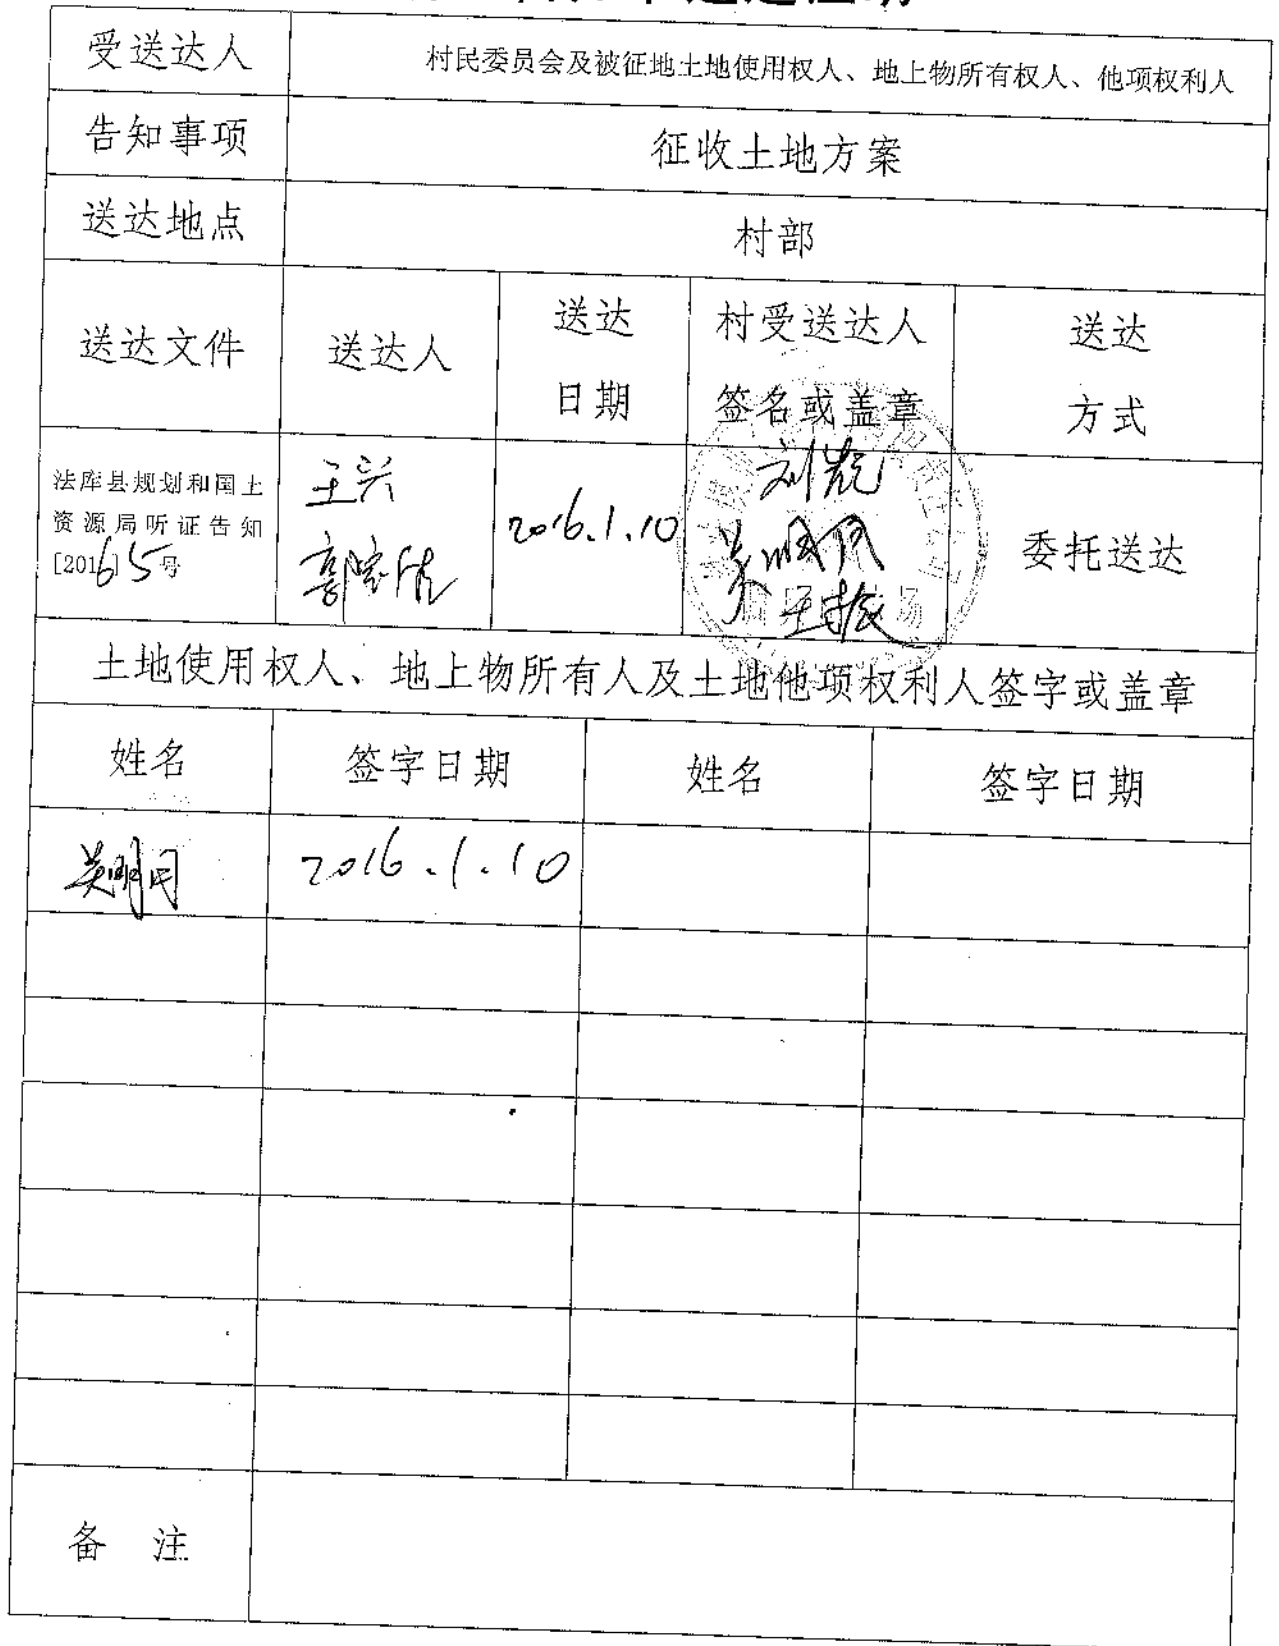 受送达人
村民委员会及被征地土地使用权人、地上物所有权人、他项权利人
告知事项
征收土地方案
送达地点
村部
送达文件
送达人
送达
日期
村受送达人
签名或盖章
送达
方式
法库县规划和国土
资源局听证告知
[2016]5号
王兴
2016.1.10
委托送达
土地使用权人、地上物所有人及土地他项权利人签字或盖章
姓名
签字日期
姓名
签字日期
2016.1.10
备 注